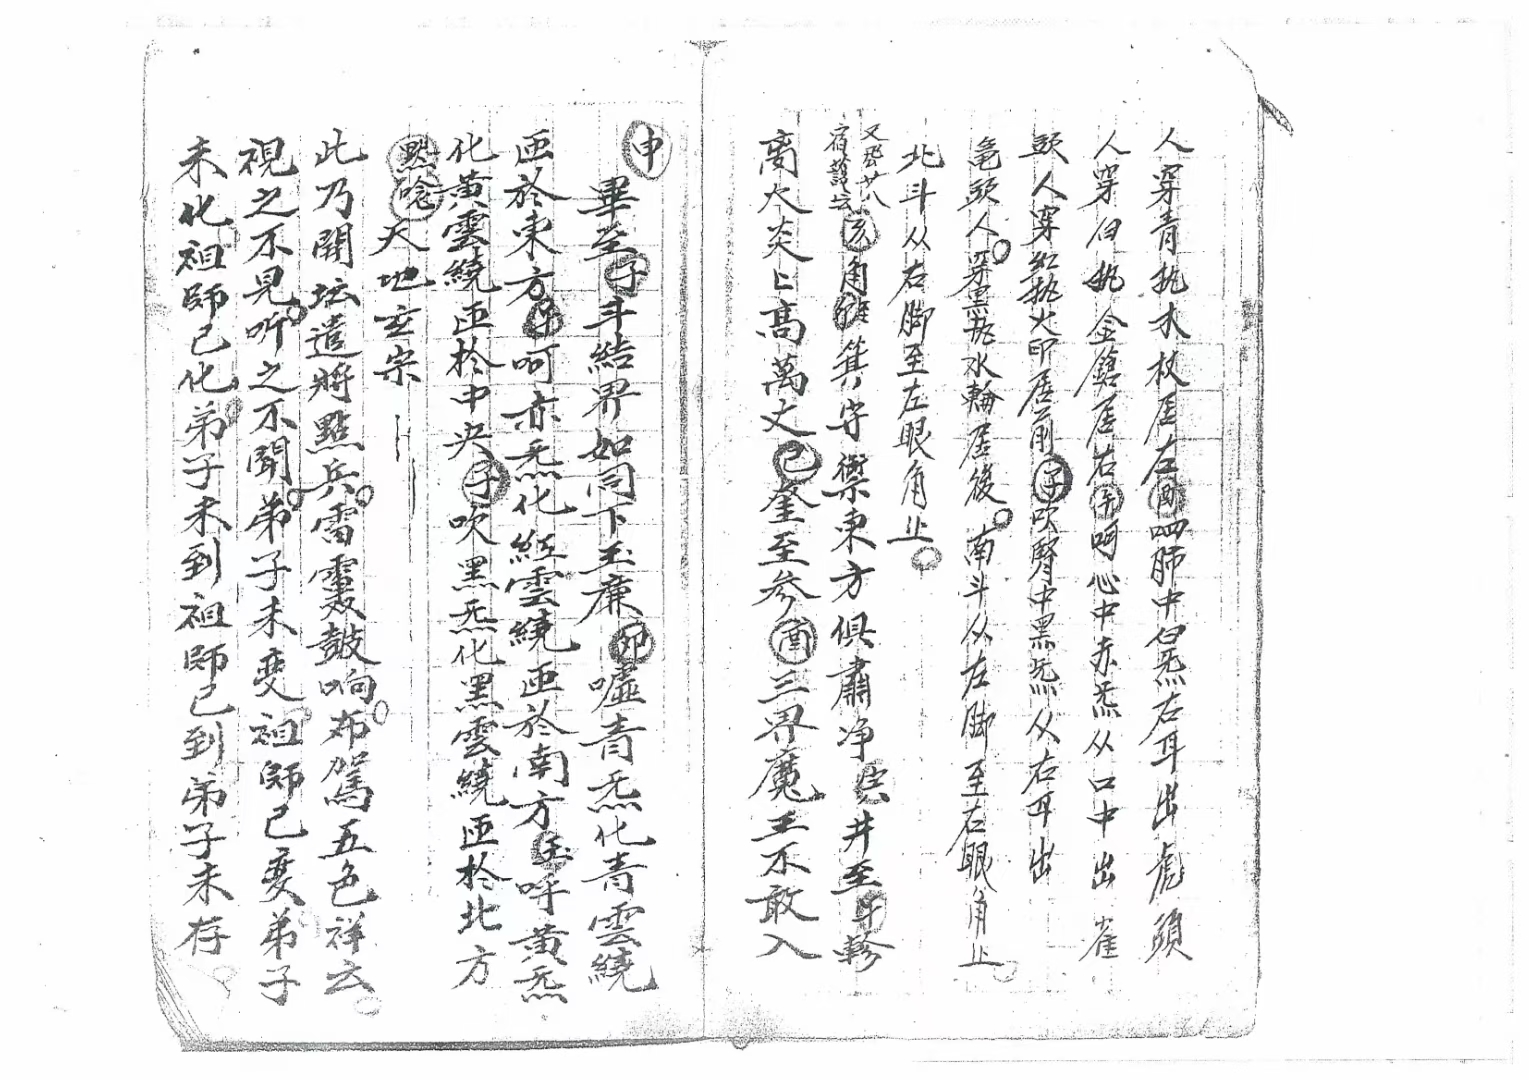 人穿青执木杖居左酉呬肺中白炁右耳出虎頭
人穿白执金鎗居右午呵心中赤炁从口中出雀
頭人穿紅执火印居前子吹腎中黑炁从右耳出
龟頭人穿黑执水輪居後南斗从左脚至右眼角止
北斗从右脚至左眼角止
又發廿八
宿護坛
亥角至箕守禦東方俱肅净井至午軫
离大炎上高萬丈巳奎至参酉三界魔王不敢入
申
畢至子斗結界如同下玉廉卯噓青炁化青雲繞
匝於東方午呵赤炁化紅雲繞匝於南方呼黄炁
化黄雲繞匝於中央子吹黑炁化黑雲繞匝於北方
默唸天地玄宗
此乃開坛遣將點兵雷霆鼓响布駕五色祥云
視之不見听之不聞弟子未变祖師已变弟子
未化祖師已化弟子未到祖師已到弟子未存